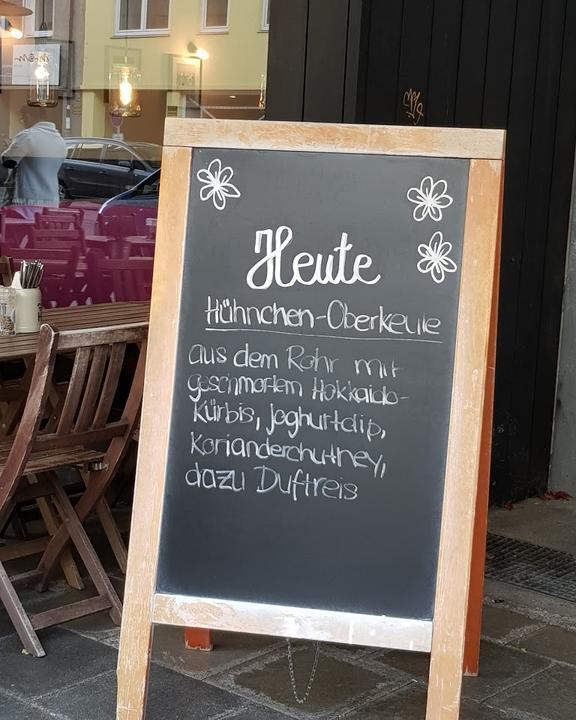 Heute
Hühnchen-Oberkeule
aus dem Rohr mit
geschmortem Hokkaido-
kürbis, Joghurtdip,
Korianderchutney,
dazu Duftreis